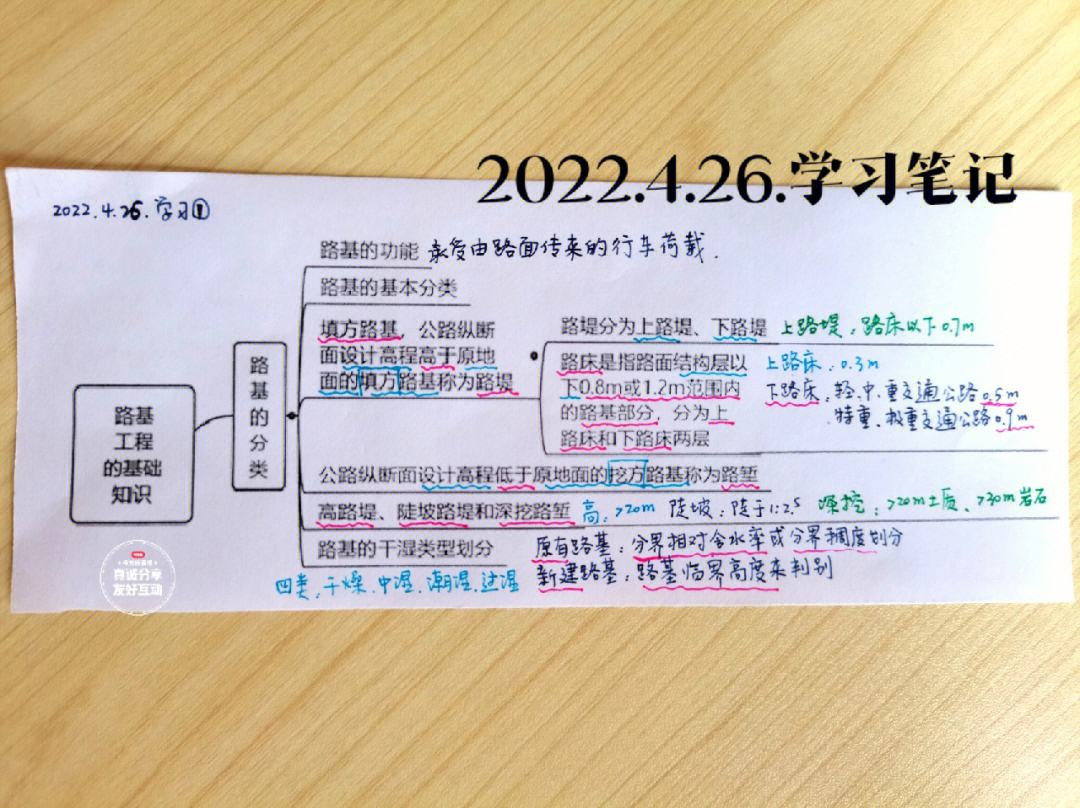 2022.4.26.学习笔记
2022.4.26.学习①
路基的功能 承受由路面传来的行车荷载.
路基的基本分类
填方路基，公路纵断
面设计高程高于原地
面的填方路基称为路堤
路堤分为上路堤、下路堤 上路堤：路床以下0.7m
路床是指路面结构层以
下0.8m或1.2m范围内
的路基部分，分为上
路床和下路床两层
上路床：0.3m
下路床：轻.中.重交通公路0.5m
特重、极重交通公路0.9m
路基
工程
的基础
知识
路
基
的
分
类
公路纵断面设计高程低于原地面的挖方路基称为路堑
高路堤、陡坡路堤和深挖路堑 高：>20m 陡坡：陡于1:2.5 深挖：>20m土质、>30m岩石
路基的干湿类型划分 原有路基：分界相对含水率或分界稠度划分
新建路基：路基临界高度来判别
四类，干燥.中湿.潮湿.过湿
真诚分享
友好互动